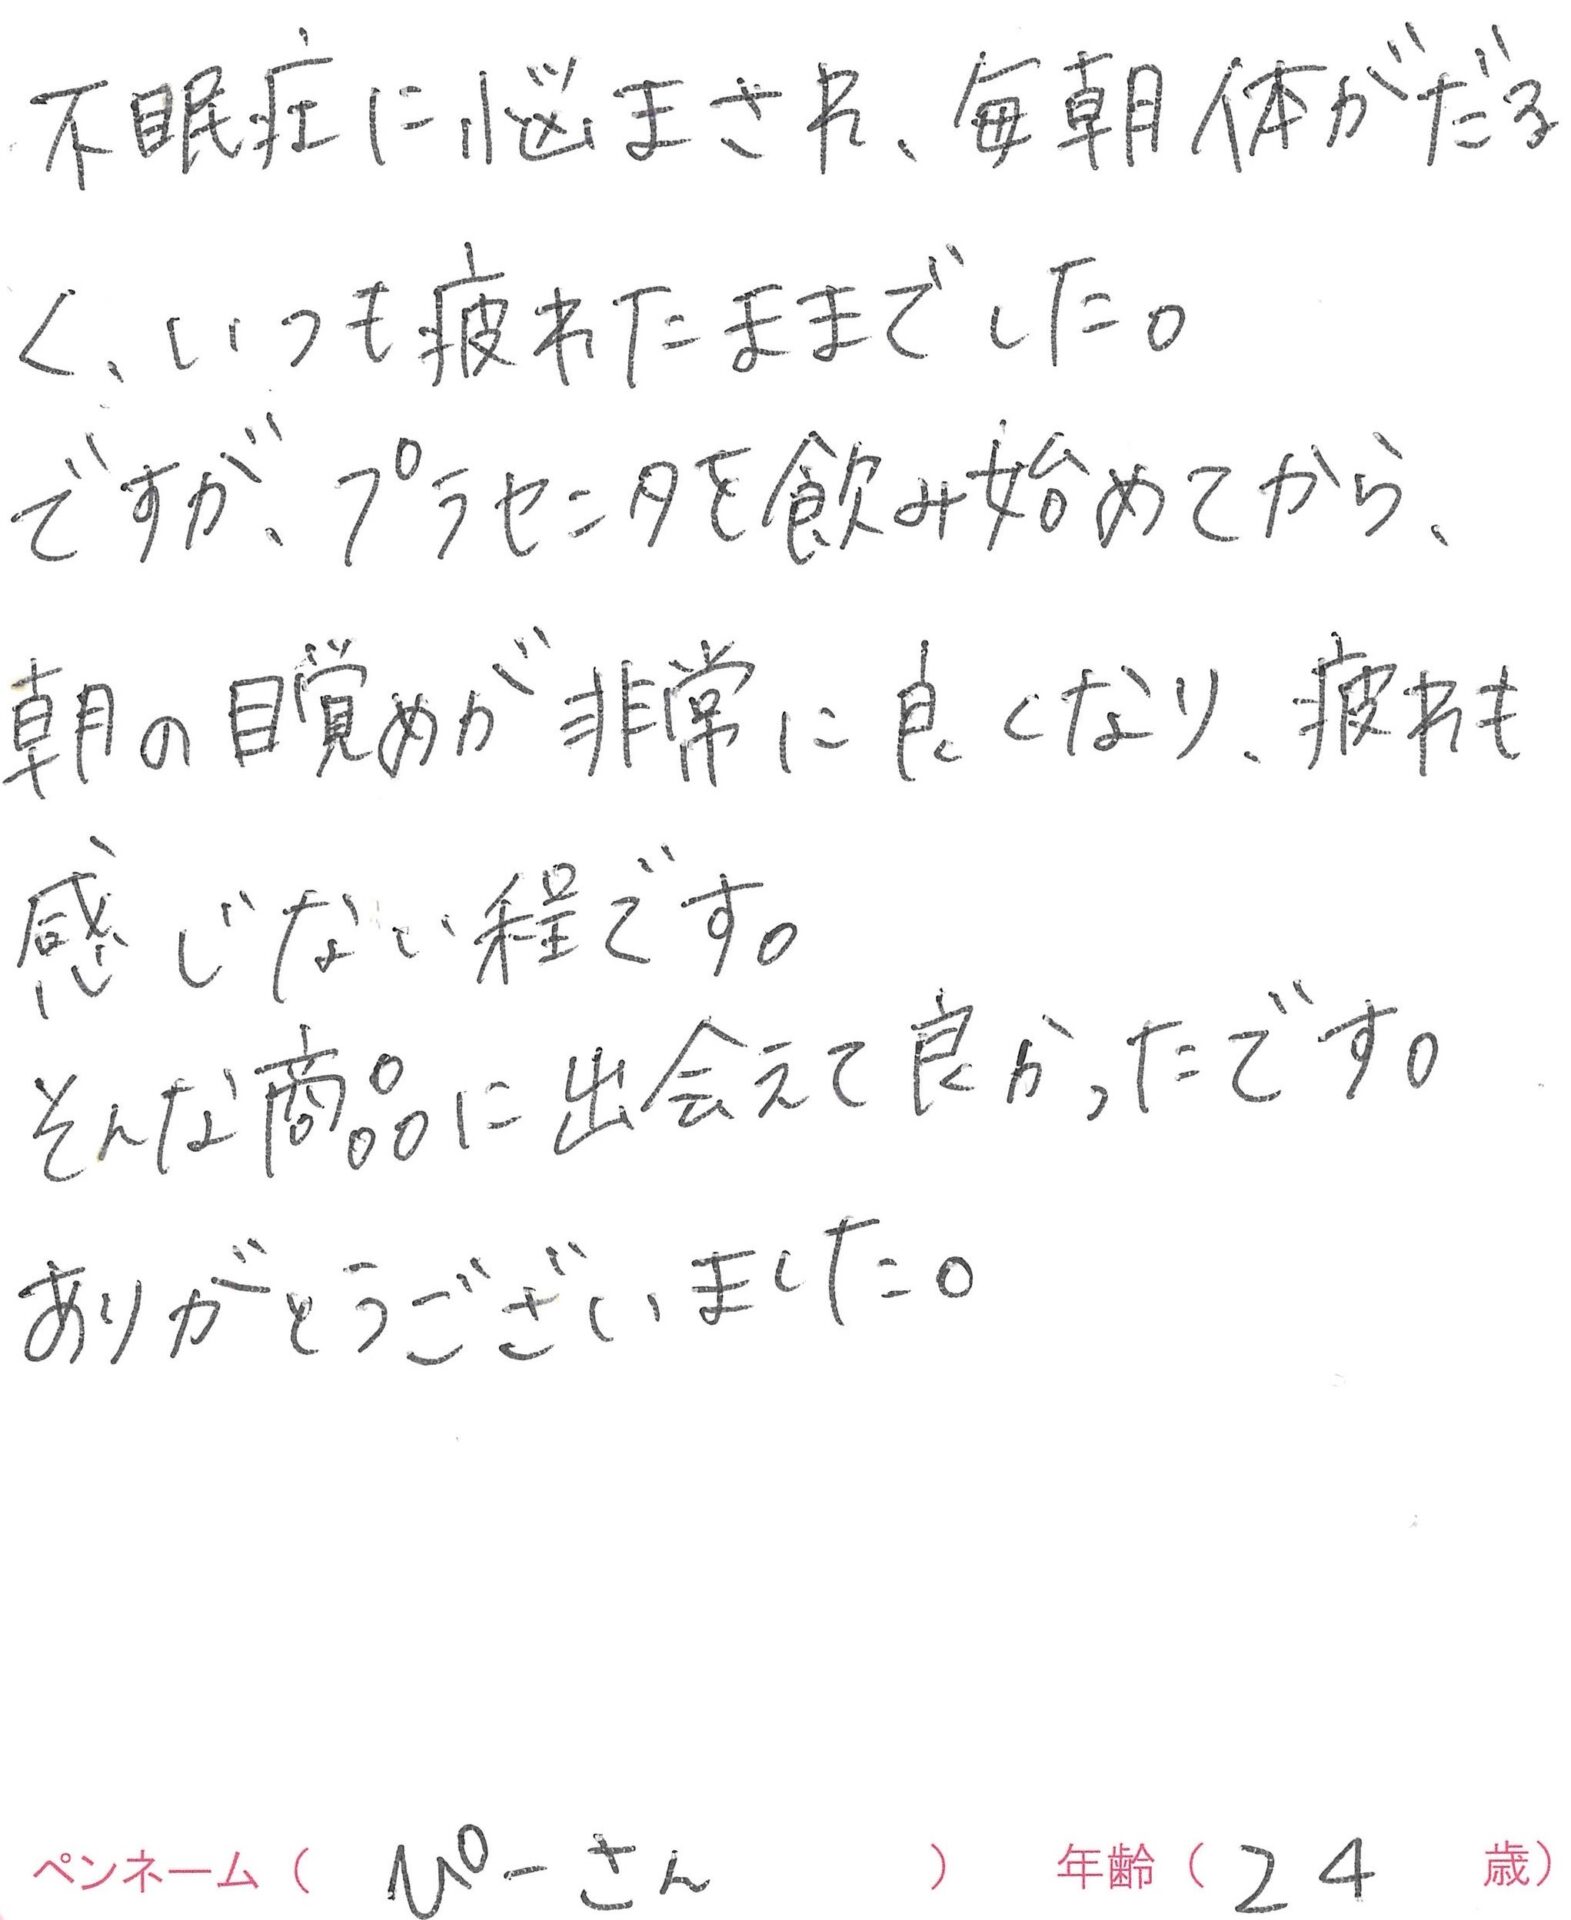 不眠症に悩まされ、毎朝体がだる
く、いつも疲れたままでした。
ですが、プラセンタを飲み始めてから、
朝の目覚めが非常に良くなり、疲れも
感じない程です。
そんな商品に出会えて良かったです。
ありがとうございました。
ペンネーム( ぴーさん ) 年齢( 24 歳)